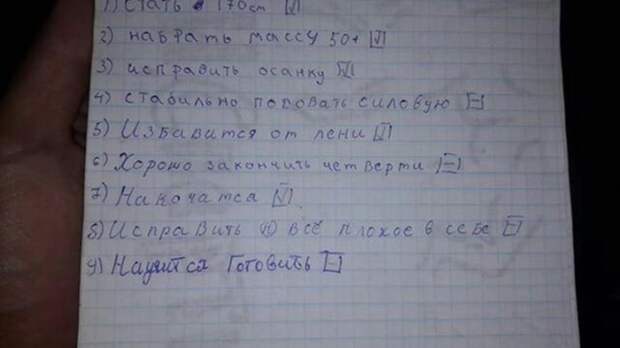 1) Стать 170 см ☑
2) набрать массу 50+ ☑
3) исправить осанку ☑
4) стабильно подовать силовую ⊟
5) Избавится от лени ☑
6) Хорошо закончить четверти ⊟
7) Накочатса ☑
8) Исправить всё плохое в себе ⊟
9) Научится Готовить ⊟